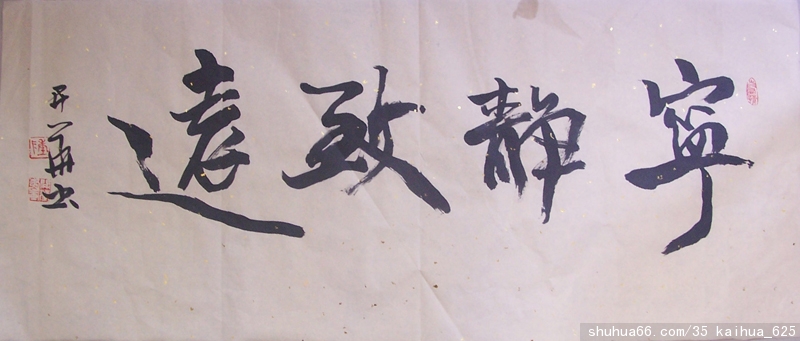 寧靜致遠
开华书
shuhua66.com/35 kaihua_625